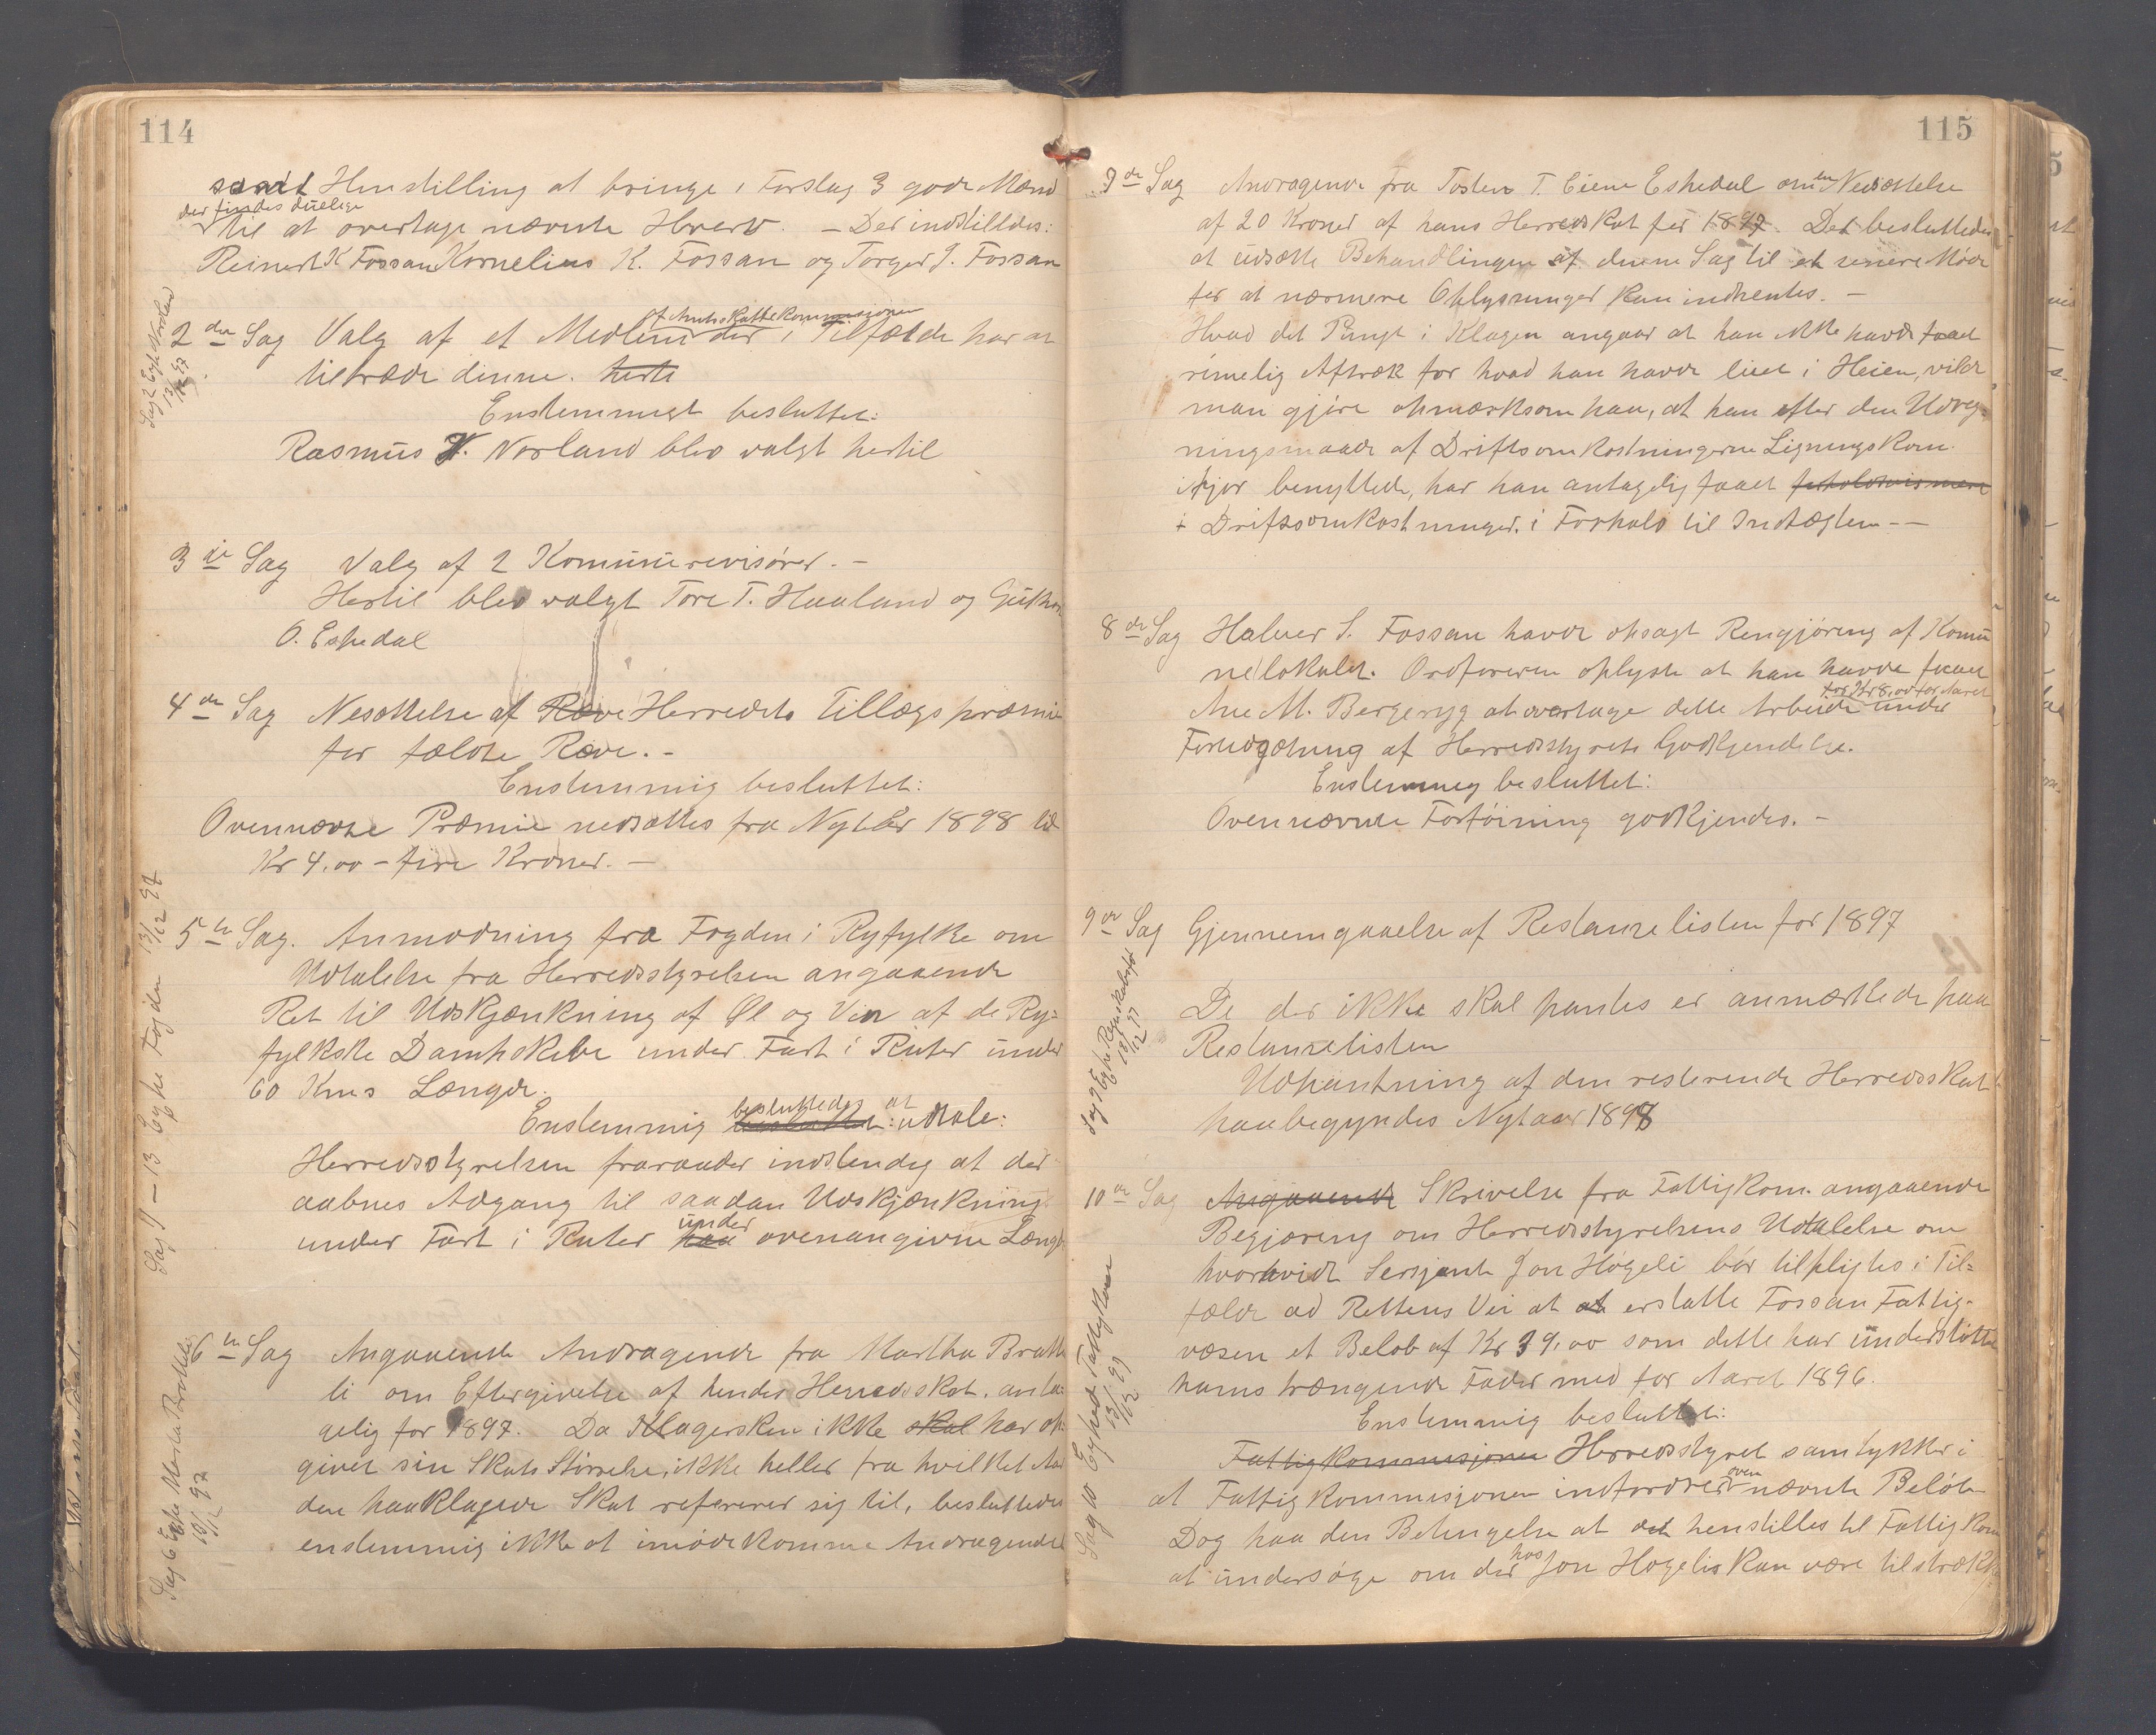 114
samt Henstilling at bringe i Forslag 3 gode Mænd
der findes duelige
til at overtage nævnte Hverv. — Der indstilledes:
Reinert K Fossan Kornelius K. Fossan og Torger J. Fossan
2den Sag Valg af et Medlem der i Tilfælde har at
af Amtsskattekommissionen
tiltræde denne. herte
Enstemmigt besluttet:
Rasmus K. Norland blev valgt hertil
3die Sag Valg af 2 Komunerevisører. —
Hertil blev valgt Tore T. Haaland og
O. Eskedal
4de Sag Nesættelse af Ræve Herredets Tillægspræmie
for fældte Ræve. -
Enstemmig besluttet:
Ovennævnte Præmie nedsættes fra Nytaar 1898 til
Kr 4.00 - fire Kroner. —
5te Sag. Anmodning fra Fogden i Ryfylke om
Udtalelse fra Herredsstyrelsen angaaende
Ret til Udskjænkning af Øl og Vin af de Ry-
fylkske Dampskibe under Fart i Ruter under
60 Kms Længde.
besluttedes at
Enstemmig besluttet: udtale:
Herredsstyrelsen fraraader indstendig at der
aabnes Adgang til saadan Udskjænkning
under
under Fart i Ruter paa ovenangivne Længde
6te Sag Angaaende Andragende fra Martha Bratte-
li om Eftergivelse af hendes Herredsskat. anta-
gelig for 1897. Da Klagersken ikke skal har op-
givet sin Skats Størrelse, ikke heller fra hvilket Aar
den paaklagede Skat refererer sig til, besluttedes
enstemmig ikke at imødekomme Andragendet
Sag 2 Exp Norland 13/12 97
Sag 5 - 13 Expe Fogden 13/12 97
Sag 6 Expe Marta Bratteli 13/12 97
115
7de Sag Andragende fra Tosten T. Eiene Eskedal om en Nedsættelse
af 20 Kroner af hans Herredsskat for 1897. Det besluttedes
at udsætte Behandlingen af denne Sag til et senere Møde
for at nærmere Oplysninger kan indhentes. —
Hvad det Punkt i Klagen angaar at han ikke havde faaet
rimelig Aftræk for hvad han havde liet i Heien, vilde
man gjøre opmærksom paa, at han efter den Udreg-
ningsmaade af Driftsomkostningerne Ligningskom.
ifjor benyttede, har han antagelig faaet forholdsvis mere
i Driftsomkostninger. i Forhold til Indtægten --
8de Sag Halver S. Fossan havde opsagt Rengjøring af Komu-
nelokalet. Ordføreren oplyste at han havde faaet
for Kr 8,00 for Aaret
Ane M. Bergeryg at overtage dette Arbeide under
Forudsætning af Herredsstyrets Godkjendelse.
Enstemmig besluttet:
Ovennævnte Forføining godkjendes. -
9de Sag Gjennemgaaelse af Restanselisten for 1897
De der ikke skal pantes er anmærkede paa
Restanselisten
Udpantning af den resterende Herredsskat
paabegyndes Nytaar 1898
10de Sag Angaaende Skrivelse fra Fattigkom. angaaende
Begjæring om Herredsstyrelsens Udtalelse om
hvorvidt Sersjant Jon Høgeli bør tilpligtes i Til-
fælde ad Rettens Vei at at erstatte Fossan Fattig-
væsen et Beløb af Kr 39.00 som dette har understøttet
hans trængende Fader med for Aaret 1896.
Enstemmig besluttet:
Fattigkommissjonen Herredsstyret samtykker i
at Fattigkommissjonen indfordrer ovennævnte Beløb
Dog paa den Betingelse at det henstilles til Fattigkom
at undersøge om der hos Jon Høgelis kan være tilstrækk-
Sag 9 Expe 13/12 97
Sag 10 Exped Fattigkom 13/12 97